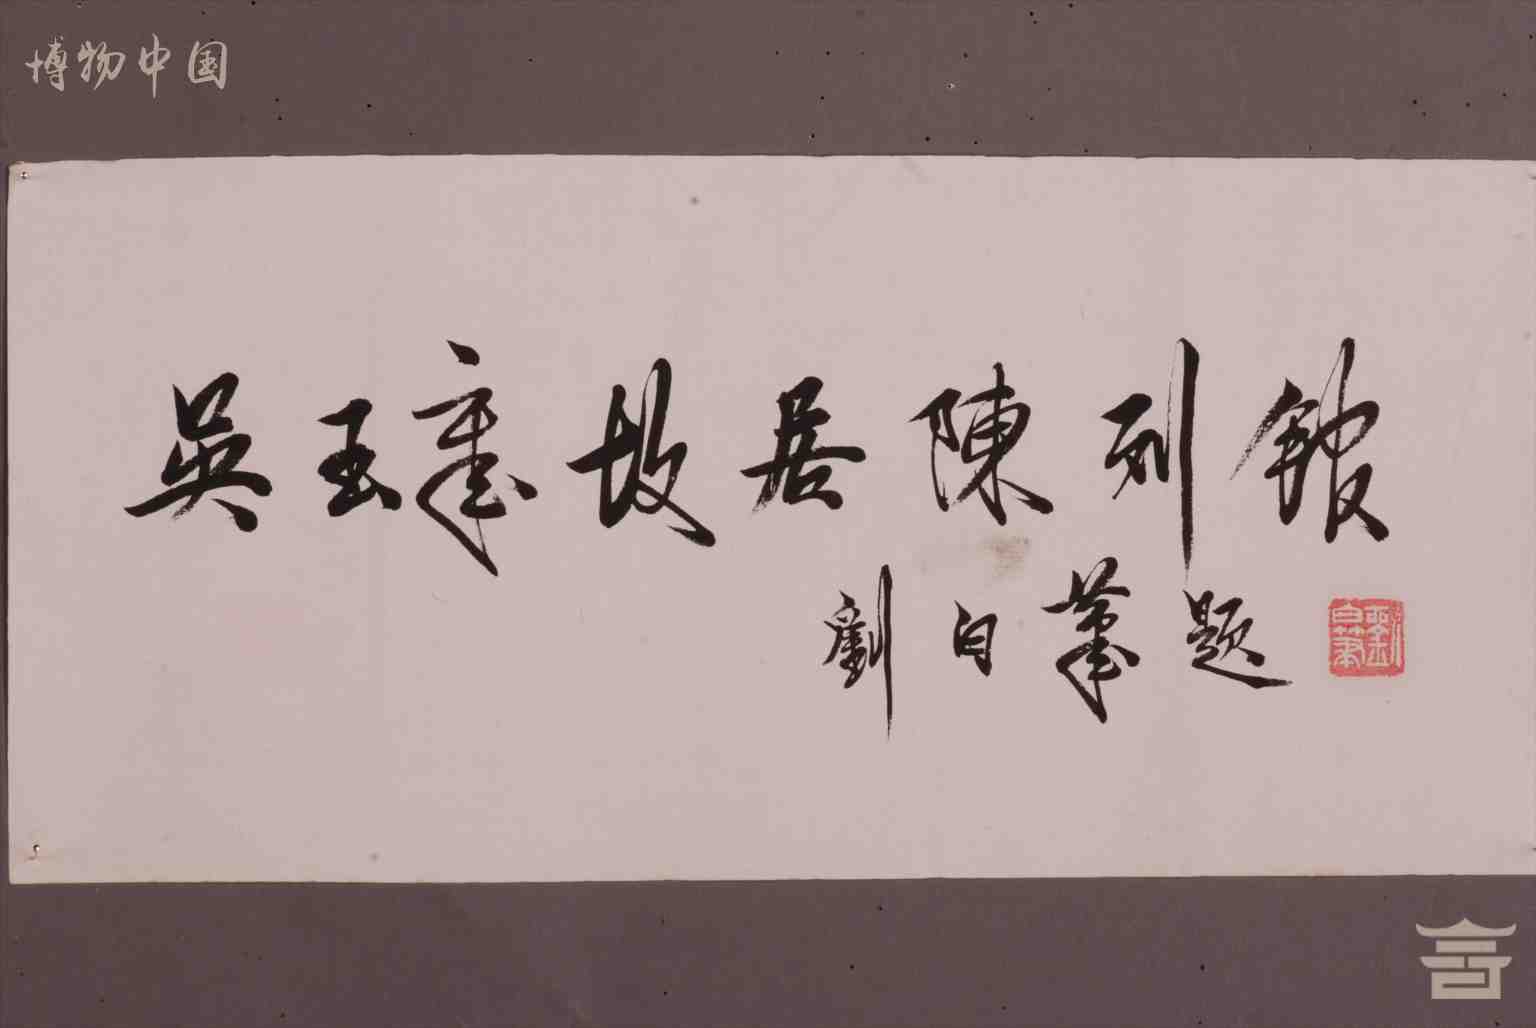 博物中国
吳玉章故居陳列館
劉白羽題